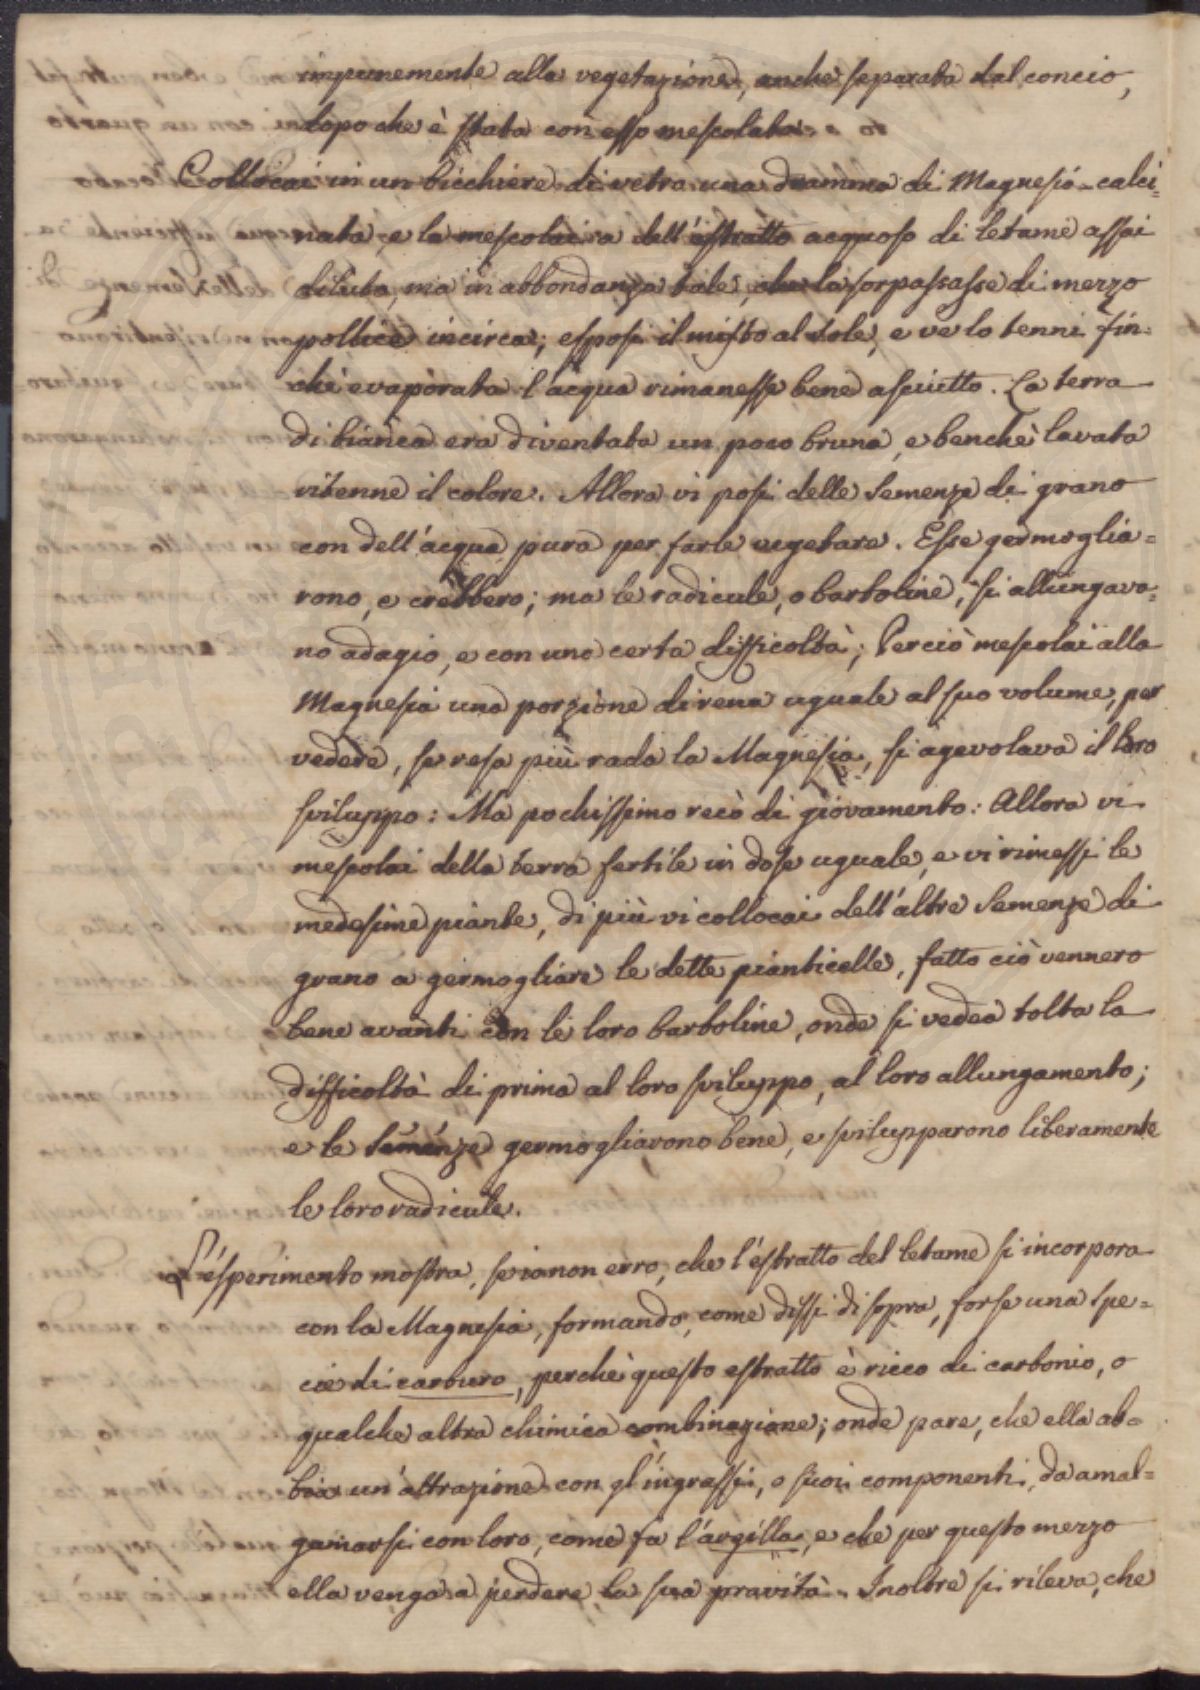 impunemente alla vegetazione, anche separata dal concio,
dopo che è stata con esso mescolata.
Collocai in un bicchiere di vetro una dramma di Magnesia calci=
nata, e la mescolai a dell'estratto acquoso di letame assai
diluto, ma in abbondanza tale, che la sorpassasse di mezzo
pollice incirca; esposi il misto al sole, e ve lo tenni fin=
chè evaporata l'acqua rimanesse bene asciutto. La terra
di bianca era diventata un poco bruna, e benchè lavata
ritenne il colore. Allora vi posi delle semenze di grano
con dell'acqua pura per farle vegetare. Esse germoglia=
rono, e crebbero; ma le radicule, o barboline, si allungava=
no adagio, e con una certa difficoltà; Perciò mescolai alla
Magnesia una porzione di rena uguale al suo volume, per
vedere, se resa più rada la Magnesia, si agevolava il loro
sviluppo: Ma pochissimo recò di giovamento: Allora vi
mescolai della terra fertile in dose uguale, e vi rimessi le
medesime piante, di più vi collocai dell'altre semenze di
grano a germogliare le dette pianticelle, fatto ciò vennero
bene avanti con le loro barboline, onde si vedea tolta la
difficoltà di prima al loro sviluppo, al loro allungamento;
e le semenze germogliarono bene, e svilupparono liberamente
le loro radicule.
L'esperimento mostra, se io non erro, che l'estratto del letame si incorpora
con la Magnesia, formando, come dissi di sopra, forse una spe=
cie di carburo, perchè questo estratto è ricco di carbonio, o
qualche altra chimica combinazione; onde pare, che ella ab=
bia un'attrazione con gl'ingrassi, o suoi componenti, da amal=
gamarsi con loro, come fa l'argilla, e che per questo mezzo
ella venga a perdere la sua pravità. Inoltre si rileva, che